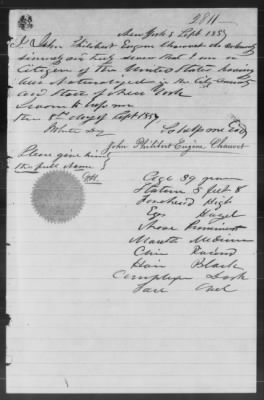 2811
New York 8 Sept 1857
I John Philibert Eugene Chauvet do solemnly
sincerely and truly swear that I am a
Citizen of the United States having
been Naturalized in the City County
and State of New York
Sworn to before me
this 8th day of Sept 1857
So help me God
John Philibert Eugène Chauvet
Please give him
the full name
Age 39 years
Stature 5 feet 8
Forehead High
Eyes Hazel
Nose Prominent
Mouth Medium
Chin Round
Hair Black
Complexion Dark
Face Oval